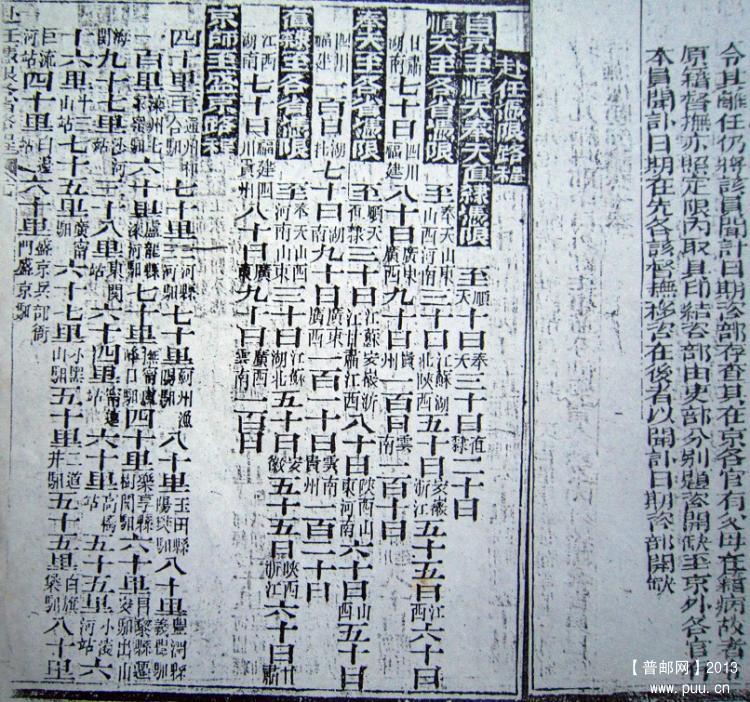 令其離任仍將該員聞訃日期咨部存查其在京各官有父母在籍病故者
原籍督撫亦照定限內取具印結咨部由吏部分別題咨開缺至京外各官
本員聞訃日期在先各該督撫移咨在後者以聞訃日期咨部開缺
赴任憑限路程
自京至順天奉天直隸憑限 至順天十日奉天三十日直隸二十日
順天至各省憑限 至奉天山東山西河南三十日江蘇湖北陝西五十日安徽浙江五十五日江西六十日
甘肅湖南七十日四川福建八十日廣東廣西九十日貴州一百日雲南一百十日
奉天至各省憑限 至順天直隸三十日江蘇安徽浙江甘肅江西八十日陝西山東河南六十日山西五十日
四川福建一百日湖七十日湖南九十日廣東廣西一百一十日雲南貴州一百二十日
直隸至各省憑限 至奉天山西河南山東三十日江蘇湖北五十日安徽五十五日陝西浙江六十日甘肅
江西湖南七十日四川貴州八十日廣東九十日廣西雲南一百日
京師至盛京路程
四十里至通州和合驛七十里三河縣三河驛七十里薊州漁陽驛八十里玉田縣陽樊驛八十里豐潤縣義豐驛
一百里灤州七家嶺驛六十里盧龍縣灤河驛七十里撫寧縣峰口驛四十里樂亭縣樹閭驛六十里昌黎縣出山安驛
海關九十七里沙河站三十八里東關站六十四里寧遠站六十里高橋站五十五里小凌河站六
十六里十三山站七十五里廣寧驛六十七里小黑山驛五十里二道井驛五十五里白旗堡驛八十里
巨流河站四十里白邊站六十里盛京兵部衙門盛京驛
【普邮网】2013
www.puu.cn